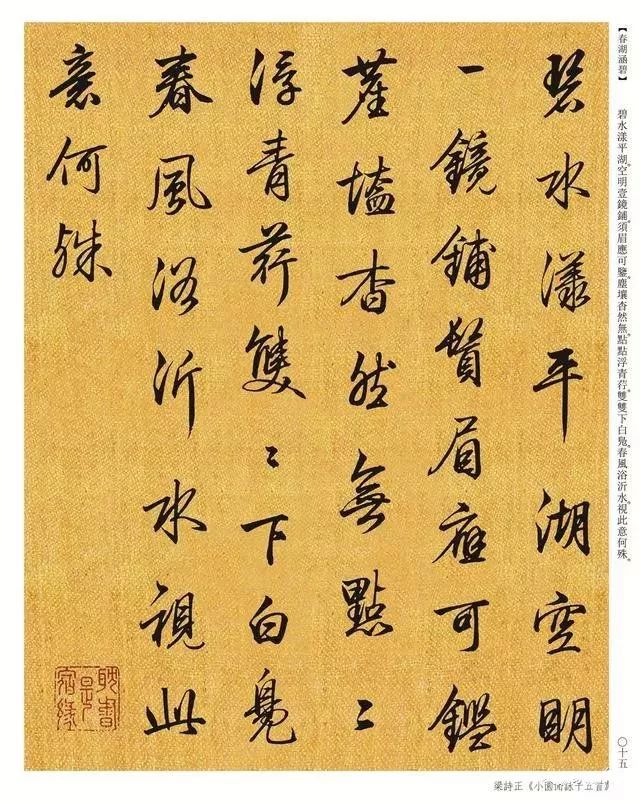 【春湖涵碧】 碧水漾平湖。空明壹鏡鋪。須眉應可鑒。塵壤杳然無。點點浮青荇。雙雙下白鳧。春風浴沂水。視此意何殊。
碧水漾平湖空明
一鏡鋪鬚眉應可鑑
塵壒杳然無點〻
浮青荇雙〻下白鳧
春風浴沂水視此
意何殊
耽書是宿緣
〇十五
梁詩正《小園詠十五首》